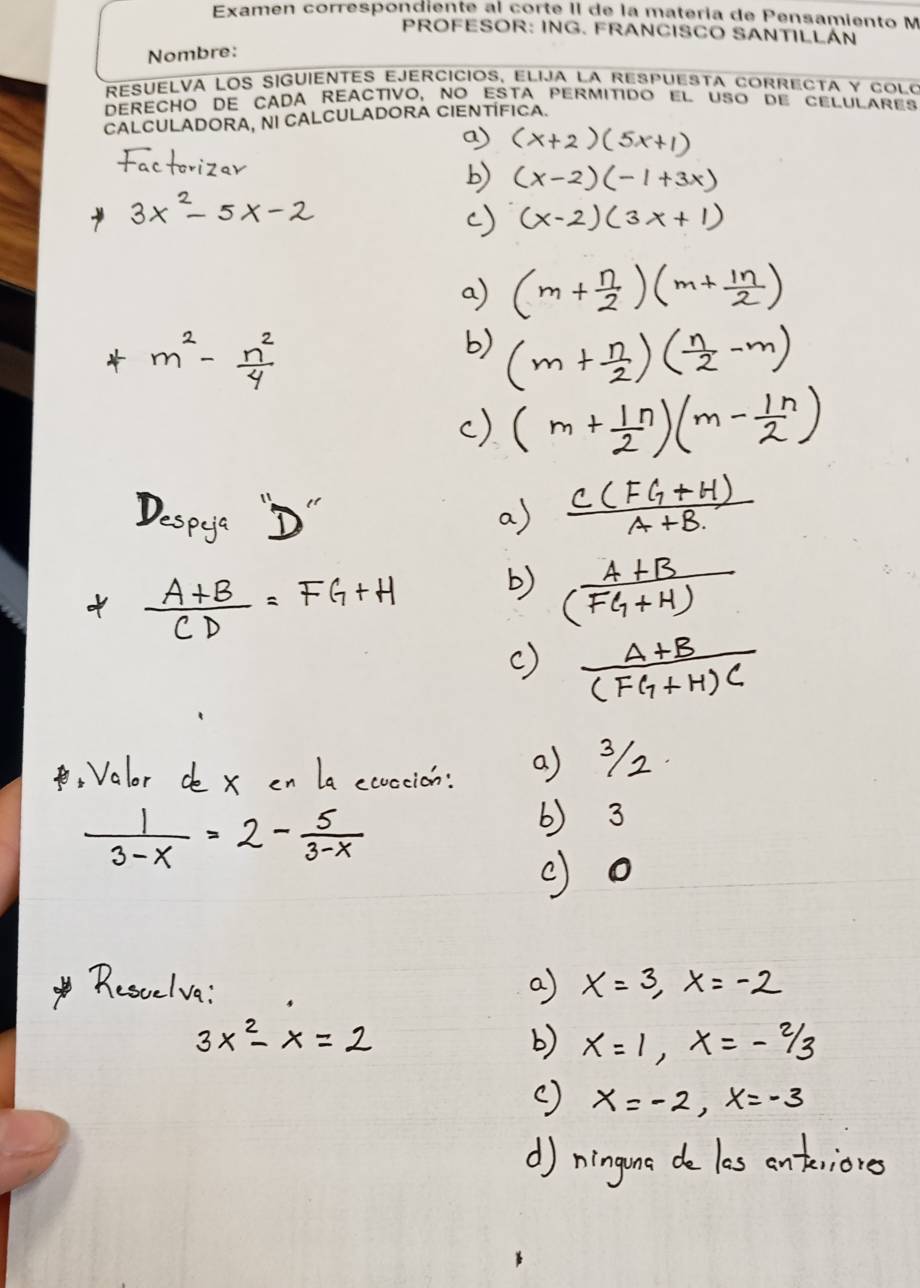 Examen correspondiente al corte II de la materia de Pensamiento M
PROFESOR: ING. FRANCISCO SANTILLÁN
Nombre:
RESUELVA LOS SIGUIENTES EJERCICIOS, ELIJA LA RESPUESTA CORRECTA Y COLO
DERECHO DE CADA REACTIVO, NO ESTA PERMITIDO EL USO DE CELULARES
CALCULADORA, NI CALCULADORA CIENTÍFICA.
Factorizar
* 3x² - 5x - 2
a) (x+2)(5x+1)
b) (x-2)(-1+3x)
c) (x-2)(3x+1)
* m² - n²/4
a) (m + n/2)(m + 1n/2)
b) (m + n/2)(n/2 - m)
c) (m + 1n/2)(m - 1n/2)
Despeja "D"
* A+B/CD = FG+H
a) C(FG+H)/A+B.
b) A+B/(FG+H)
c) A+B/(FG+H)C
*. Valor de x en la ecuación:
1/3-x = 2 - 5/3-x
a) 3/2.
b) 3
c) 0
* Resuelva:
3x² - x = 2
a) x = 3, x = -2
b) x = 1, x = -2/3
c) x = -2, x = -3
d) ninguna de las anteriores